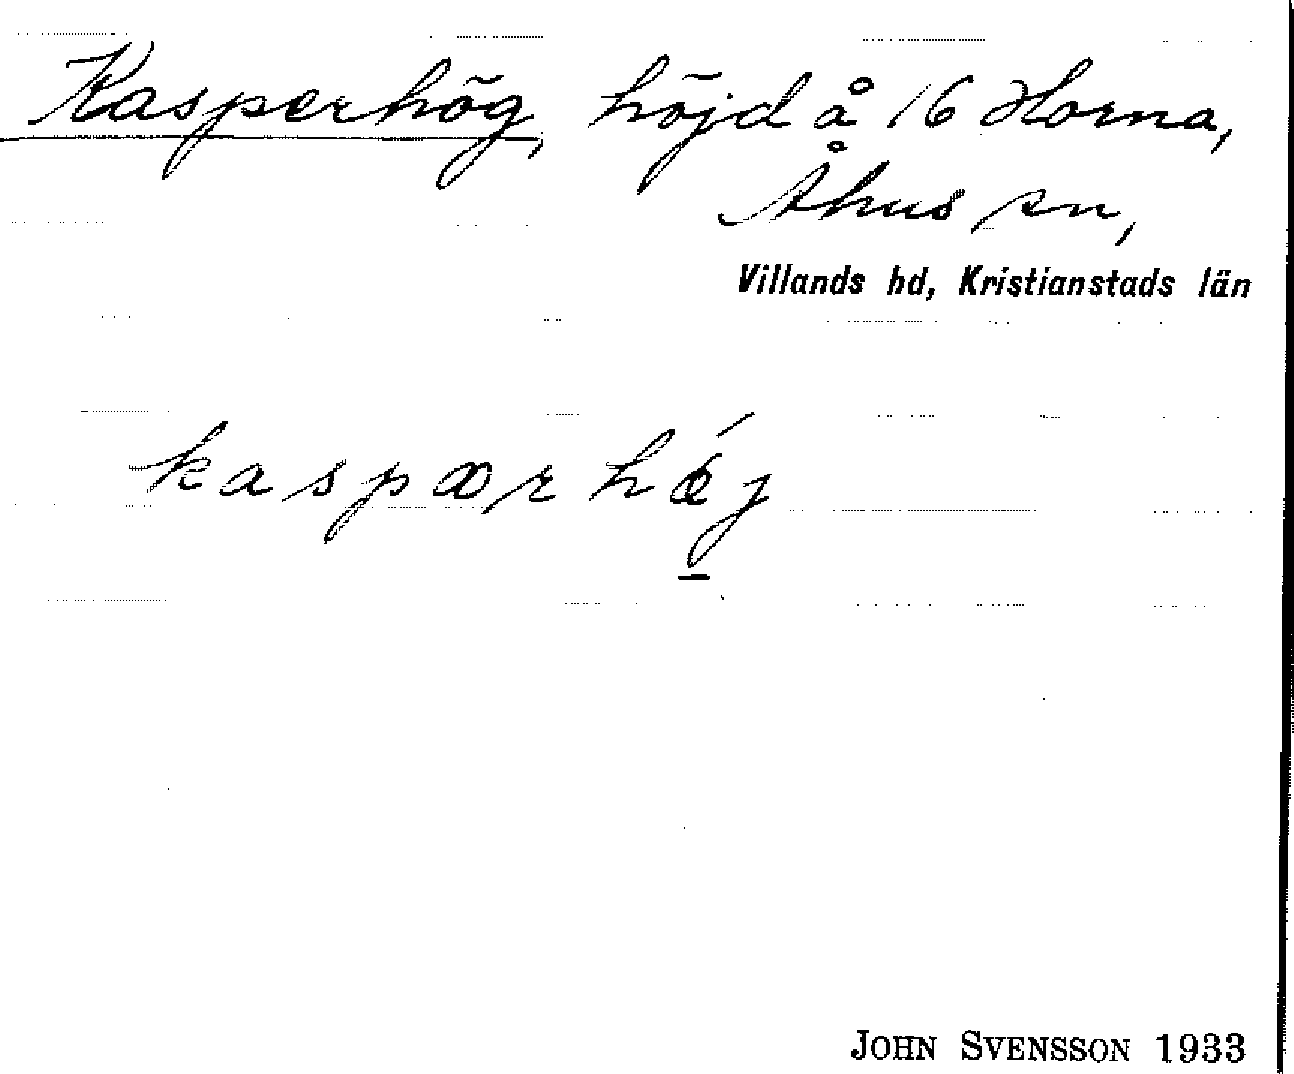 Kasperhög, höjd å 16 Horna,
Åhus sn,
Villands hd, Kristianstads län
kaspærhǿj
JOHN SVENSSON 1933